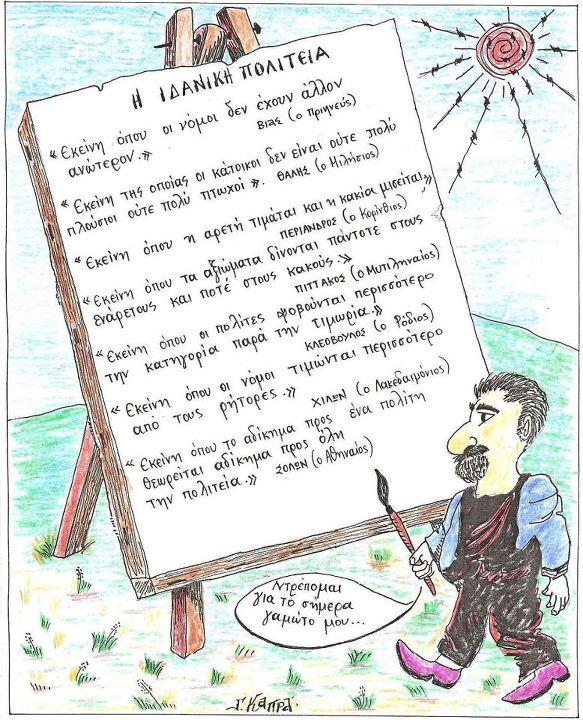 Η ΙΔΑΝΙΚΗ ΠΟΛΙΤΕΙΑ
« Εκείνη όπου οι νόμοι δεν έχουν άλλον
ανώτερον.»
ΒΙΑΣ (ο Πριηνεύς)
« Εκείνη της οποίας οι κάτοικοι δεν είναι ούτε πολύ
πλούσιοι ούτε πολύ πτωχοί ». ΘΑΛΗΣ (ο Μιλήσιος)
« Εκείνη όπου η αρετή τιμάται και η κακία μισείται»
ΠΕΡΙΑΝΔΡΟΣ (ο Κορίνθιος)
« Εκείνη όπου τα αξιώματα δίνονται πάντοτε στους
ενάρετους και ποτέ στους κακούς.»
ΠΙΤΤΑΚΟΣ (ο Μυτιληναίος)
« Εκείνη όπου οι πολίτες φοβούνται περισσότερο
την κατηγορία παρά την τιμωρία.»
ΚΛΕΟΒΟΥΛΟΣ (ο Ρόδιος)
« Εκείνη όπου οι νόμοι τιμώνται περισσότερο
από τους ρήτορες.»
ΧΙΛΩΝ (ο Λακεδαιμόνιος)
« Εκείνη όπου το αδίκημα προς ένα πολίτη
θεωρείται αδίκημα προς όλη
την πολιτεία.» ΣΟΛΩΝ (ο Αθηναίος)
Ντρέπομαι
για το σήμερα
γαμώτο μου...
Γ. ΚΑΠΡΑΣ